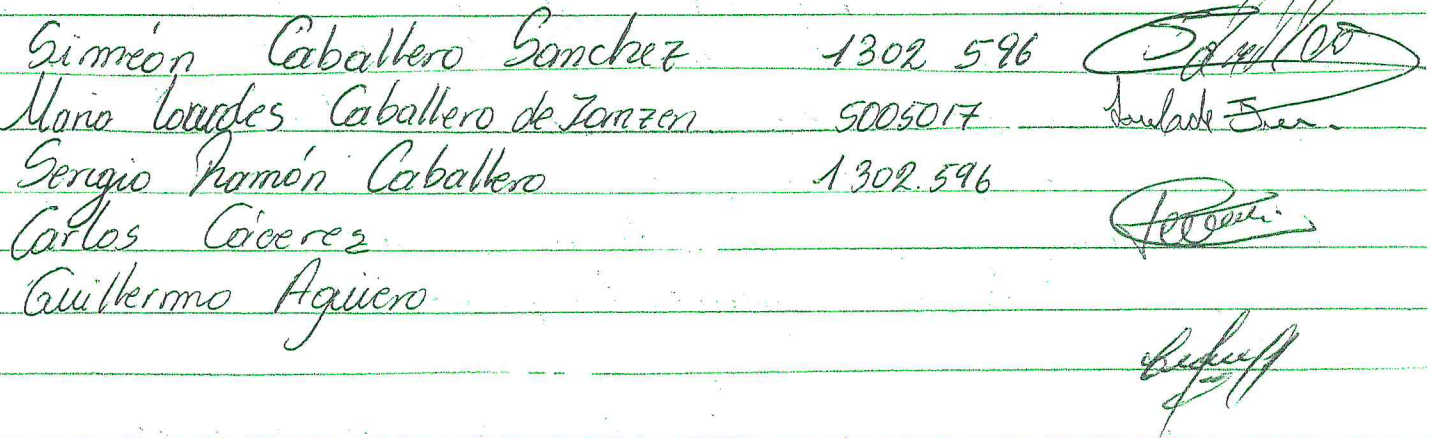 Simeón Caballero Sanchez 1302 596
Maria Lourdes Caballero de Janzen 5005017
Sergio Ramón Caballero 1302.596
Carlos Cácerez
Guillermo Agüero